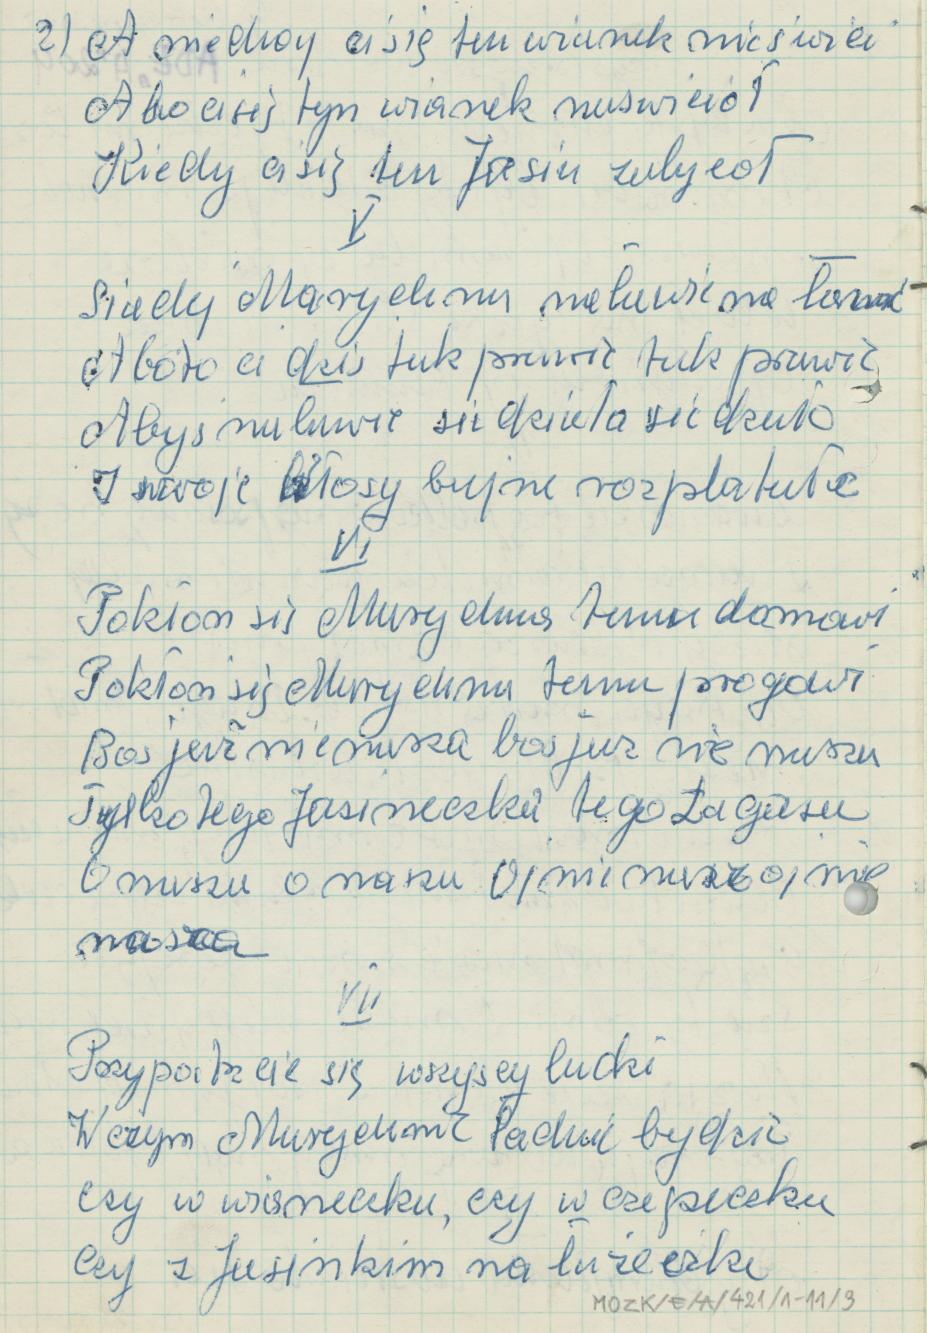 2) A niechoy ci się ten wianek nie świci
A bo ci się tyn wianek naświciół
Kiedy ci się ten Jasiu zalycoł
V
Siadej Marychna na ławie na ławie
A boto ci dziś tak prawie tak prawie
Abyś na ławie siedziała siedzała
I swoje włosy bujne rozplatała
VI
Pokłoń się Marychna temu domowi
Pokłoń się Marychna temu progowi
Boś już nie nasza boś już nie nasza
Tylko tego Jasineczka tego Łagasa
O nasza o nasza Oj nie nasza oj nie
nasza
VII
Przypatrzcie się wszyscy ludzi
W czym Marychnie ładnie bydzie
Czy w wianeczku, czy w czepeczku
Czy z Jasinkim na łużeczku
MOZK/E/A/421/1-11/3